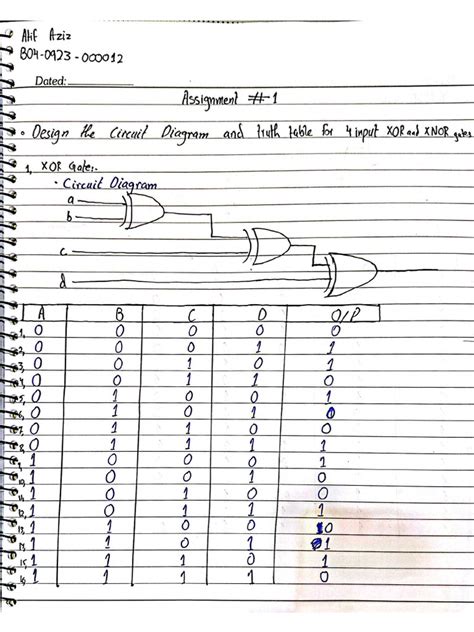 Atif Aziz
B04-0923-000012
Dated:
Assignment #1
• Design the Circuit Diagram and truth table for 4 input XOR and XNOR gates
1, XOR Gate:-
• Circuit Diagram
a
b
c
d
A B C D O/P
1, 0 0 0 0 0
2, 0 0 0 1 1
3, 0 0 1 0 1
4, 0 0 1 1 0
5, 0 1 0 0 1
6, 0 1 0 1 0
7, 0 1 1 0 0
8, 0 1 1 1 1
9, 1 0 0 0 1
10, 1 0 0 1 0
11, 1 0 1 0 0
12, 1 0 1 1 1
13, 1 1 0 0 0
13, 1 1 0 1 1
15, 1 1 1 0 1
16, 1 1 1 1 0